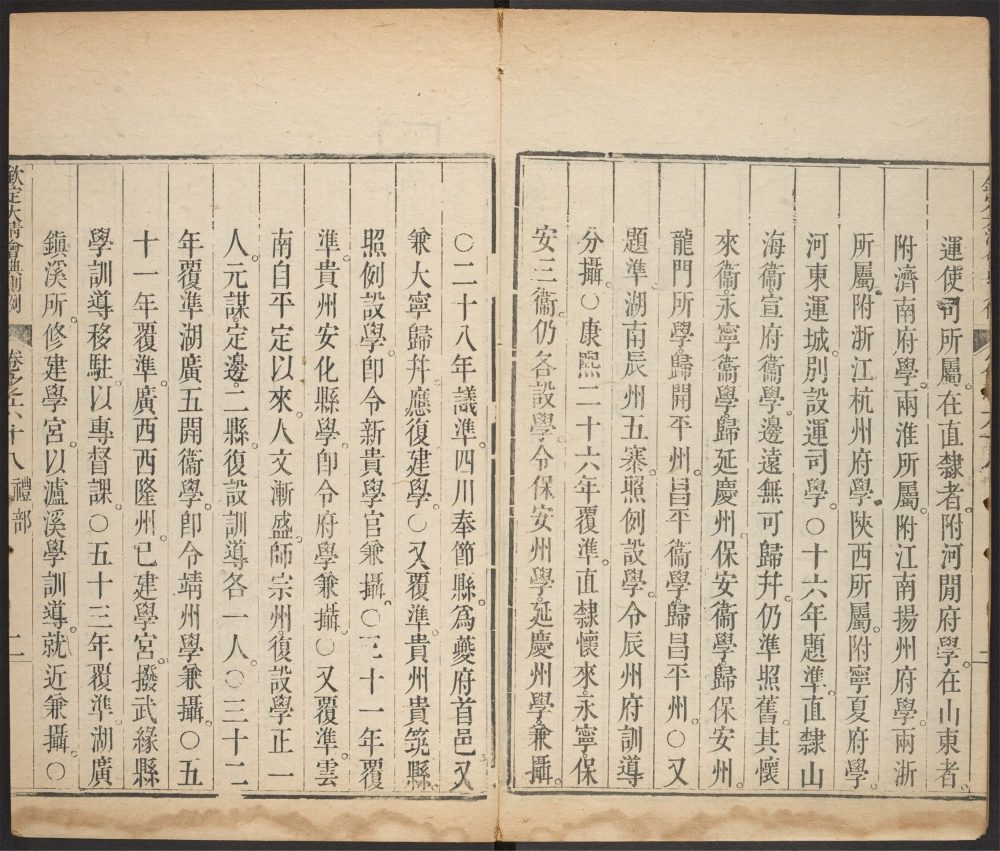 運使司所屬。在直隸者。附河閒府學。在山東者。
附濟南府學。兩淮所屬。附江南揚州府學。兩浙
所屬。附浙江杭州府學。陝西所屬。附寧夏府學。
河東運城。別設運司學。○十六年題準。直隸山
海衞。宣府衞學。邊遠無可歸并。仍準照舊。其懷
來衞。永寧衞學。歸延慶州。保安衞學。歸保安州。
龍門所學。歸開平州。昌平衞學。歸昌平州。○又
題準。湖南辰州五寨。照例設學。令辰州府訓導
分攝。○康熙二十六年覆準。直隸懷來。永寧。保
安三衞。仍各設學。令保安州學。延慶州學。兼攝。
○二十八年議準。四川奉節縣。爲夔府首邑。又
兼大寧歸并。應復建學。○又覆準。貴州貴筑縣。
照例設學。卽令新貴學官兼攝。○三十一年覆
準。貴州安化縣學。卽令府學兼攝。○又覆準。雲
南自平定以來。人文漸盛。師宗州復設學正一
人。元謀定邊。二縣。復設訓導各一人。○三十二
年覆準。湖廣五開衞學。卽令靖州學兼攝。○五
十一年覆準。廣西西隆州。已建學宮。撥武緣縣
學訓導移駐。以專督課。○五十三年覆準。湖廣
鎭溪所。修建學宮。以瀘溪學訓導。就近兼攝。○
欽定大淸會典則例 卷之六十八 禮部 二